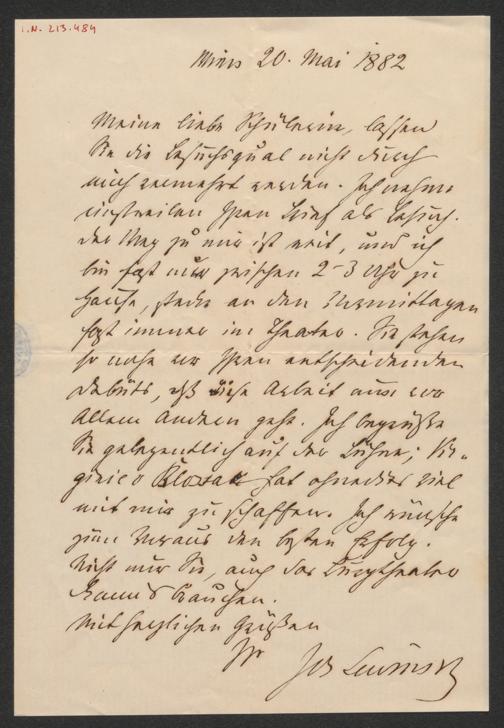 I.N. 213.484
Wien 20. Mai 1882
Meine liebe Schülerin, lassen
Sie die Besuchsqual nicht durch
mich vermehrt werden. Ich nehme
einstweilen Ihren Brief als Besuch.
Der Weg zu mir ist weit, und ich
bin fast nur zwischen 2-3 Uhr zu
Hause, stecke an den Vormittagen
fast immer im Theater. Sie stehen
so nahe vor Ihren entscheidenden
Debüts, daß diese Arbeit nun vor
allem Andern geht. Ich begrüße
Sie gelegentlich auf der Bühne; Vir-
ginie o hat ohnedies viel
mit mir zu schaffen. Ich wünsche
zum Voraus den besten Erfolg.
Nicht nur Sie, auch das Burgtheater
kann's brauchen.
Mit herzlichen Grüßen
Ihr
Jos Lewinsky